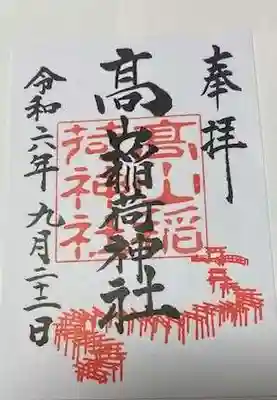 奉拝
髙山稲荷神社
髙山稲
荷神社
令和六年九月二十二日